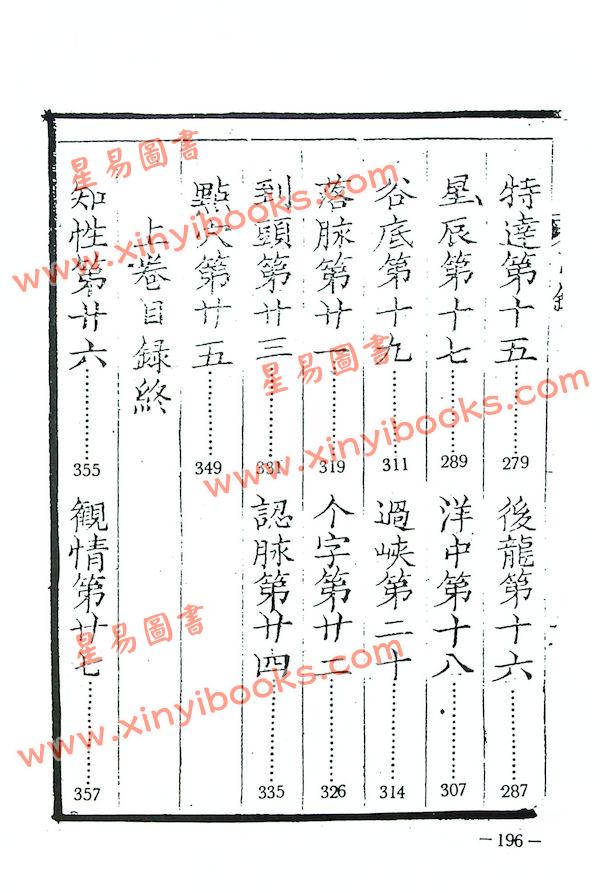 特達第十五………279
後龍第十六………287
星辰第十七………289
洋中第十八………307
谷底第十九………311
過峽第二十………314
落脉第廿一………319
个字第廿二………326
到頭第廿三………331
認脉第廿四………335
點穴第廿五………349
上卷目録終
知性第廿六………355
觀情第廿七………357
—196—
星易圖書
www.xinyibooks.com
星易圖書
www.xinyibooks.com
星易圖書
www.xinyibooks.com